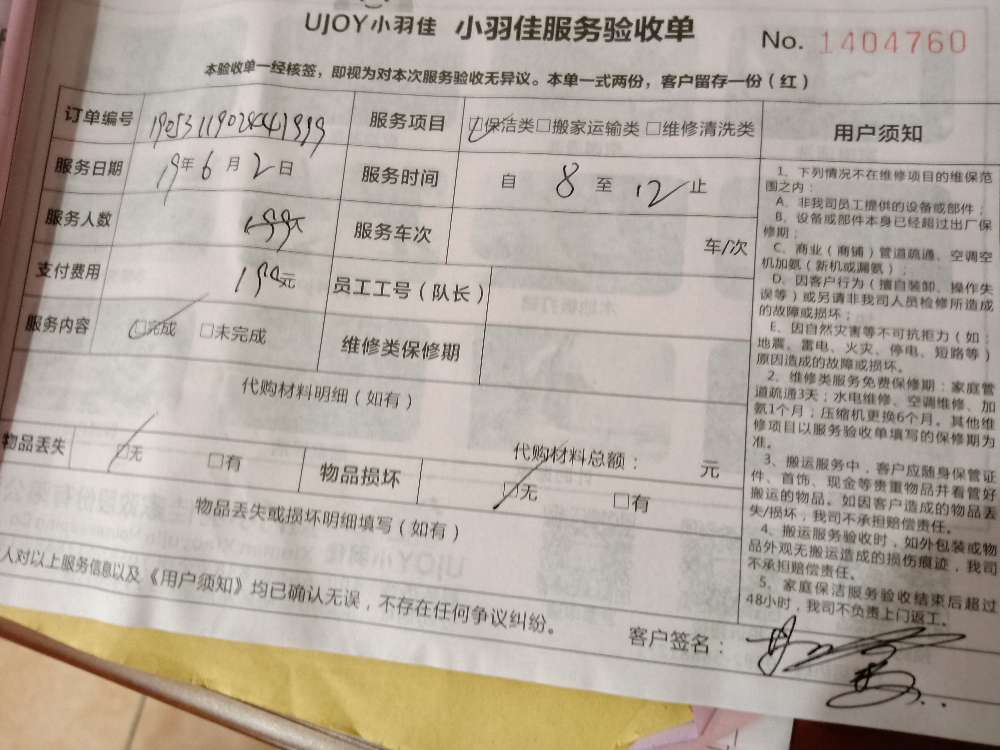 UJOY小羽佳 小羽佳服务验收单 No. 1404760
本验收单一经核签，即视为对本次服务验收无异议。本单一式两份，客户留存一份（红）
订单编号 服务项目 □保洁类□搬家运输类 □维修清洗类
服务日期 19年 6月 2日 服务时间 自 8 至 12 止
服务人数 服务车次 车/次
支付费用 元 员工工号（队长）
服务内容 □完成 □未完成 维修类保修期
代购材料明细（如有）
代购材料总额： 元
物品丢失 □无 □有 物品损坏 □无 □有
物品丢失或损坏明细填写（如有）
人对以上服务信息以及《用户须知》均已确认无误，不存在任何争议纠纷。
客户签名：
用户须知
1、下列情况不在维修项目的维保范
围之内：
A、非我司员工提供的设备或部件；
B、设备或部件本身已经超过出厂保
修期；
C、商业（商铺）管道疏通、空调空
机加氨（新机或漏氨）；
D、因客户行为（擅自装卸、操作失
误等）或另请非我司人员检修所造成
的故障或损坏；
E、因自然灾害等不可抗拒力（如：
地震、雷电、火灾、停电、短路等）
原因造成的故障或损坏。
2、维修类服务免费保修期：家庭管
道疏通3天；水电维修、空调维修、加
氨1个月；压缩机更换6个月。其他维
修项目以服务验收单填写的保修期为
准。
3、搬运服务中，客户应随身保管证
件、首饰、现金等贵重物品并看管好
搬运的物品。如因客户造成的物品丢
失/损坏，我司不承担赔偿责任。
4、搬运服务验收时，如外包装或物
品外观无搬运造成的损伤痕迹，我司
不承担赔偿责任。
5、家庭保洁服务验收结束后超过
48小时，我司不负责上门返工。